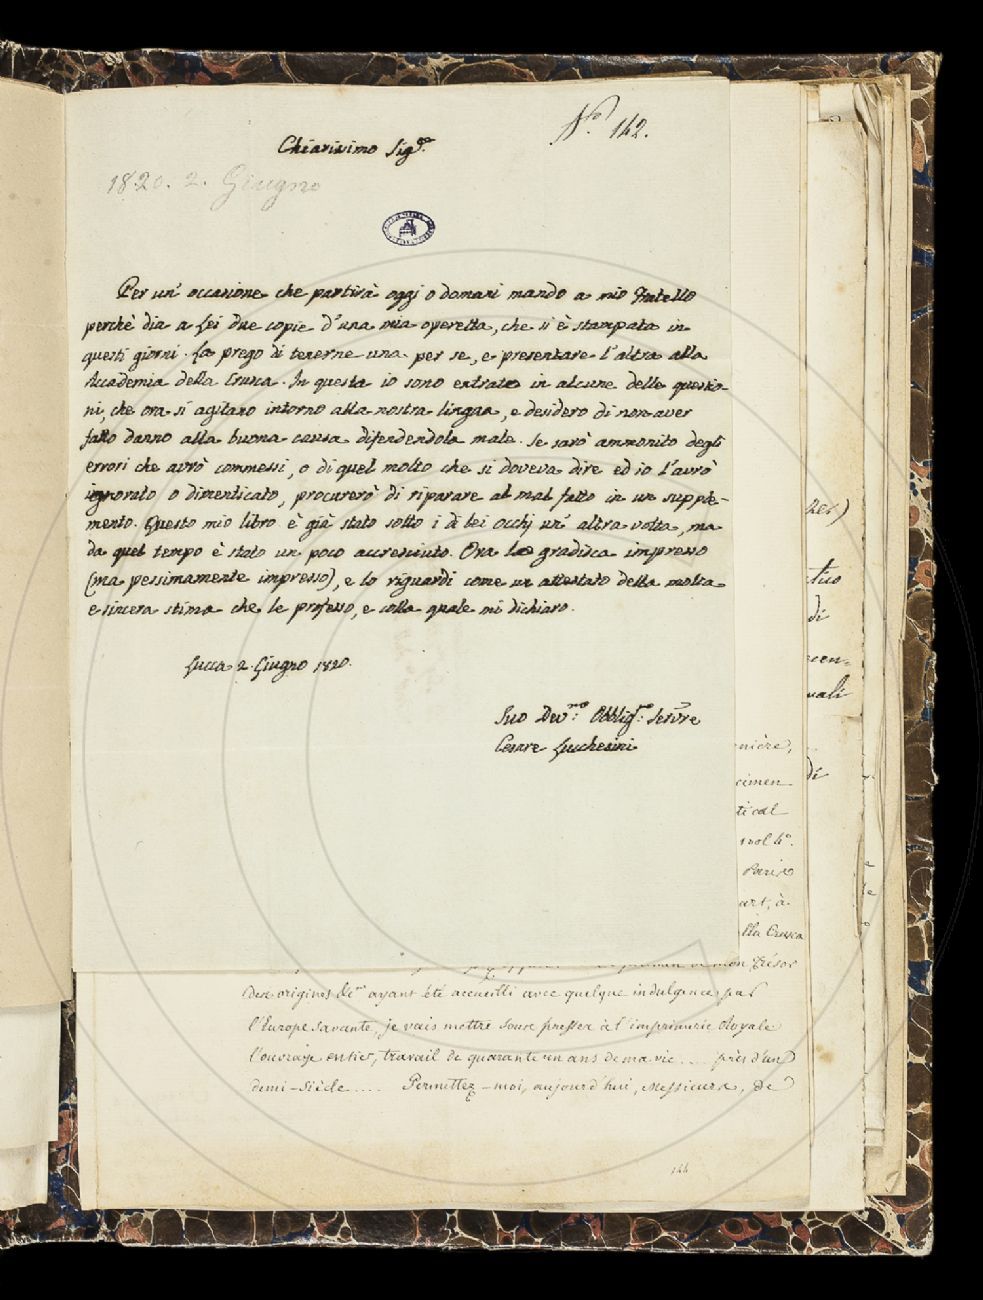 N.º 142.
Chiarissimo Sig.re
1820. 2. Giugno
Per un' occasione che partirà oggi o domani mando a mio Fratello
perchè dia a Lei due copie d'una mia operetta, che si è stampata in
questi giorni. La prego di tenerne una per se, e presentare l'altra alla
Accademia della Crusca. In questa io sono entrato in alcune delle questio-
ni, che ora si agitano intorno alla nostra lingua, e desidero di non aver
fatto danno alla buona causa difendendola male. Se sarò ammonito degli
errori che avrò commessi, o di quel molto che si doveva dire ed io l'avrò
ignorato o dimenticato, procurerò di riparare al mal fatto in un supple-
mento. Questo mio libro è già stato sotto i di lei occhj un' altra volta, ma
da quel tempo è stato un poco accresciuto. Ora lo gradisca impresso
(ma pessimamente impresso), e lo riguardi come un attestato della molta
e sincera stima che le professo, e colla quale mi dichiaro.
Lucca 2. Giugno 1820.
Suo Dev.mo: Obblig.mo: Servre
Cesare Lucchesini
nière,
cimen
tical
vol 4.º
Paris
art, à
lla Crusca
mon Trésor
des origines &.ca ayant été accueilli avec quelque indulgence par
l'Europe savante, je vais mettre sous presse à l'imprimerie Royale
l'ouvrage entier, travail de quarante un ans de ma vie .... près d'un
demi-siècle .... Permettez-moi, aujourd'hui, Messieurs, de
144
di
uali
di